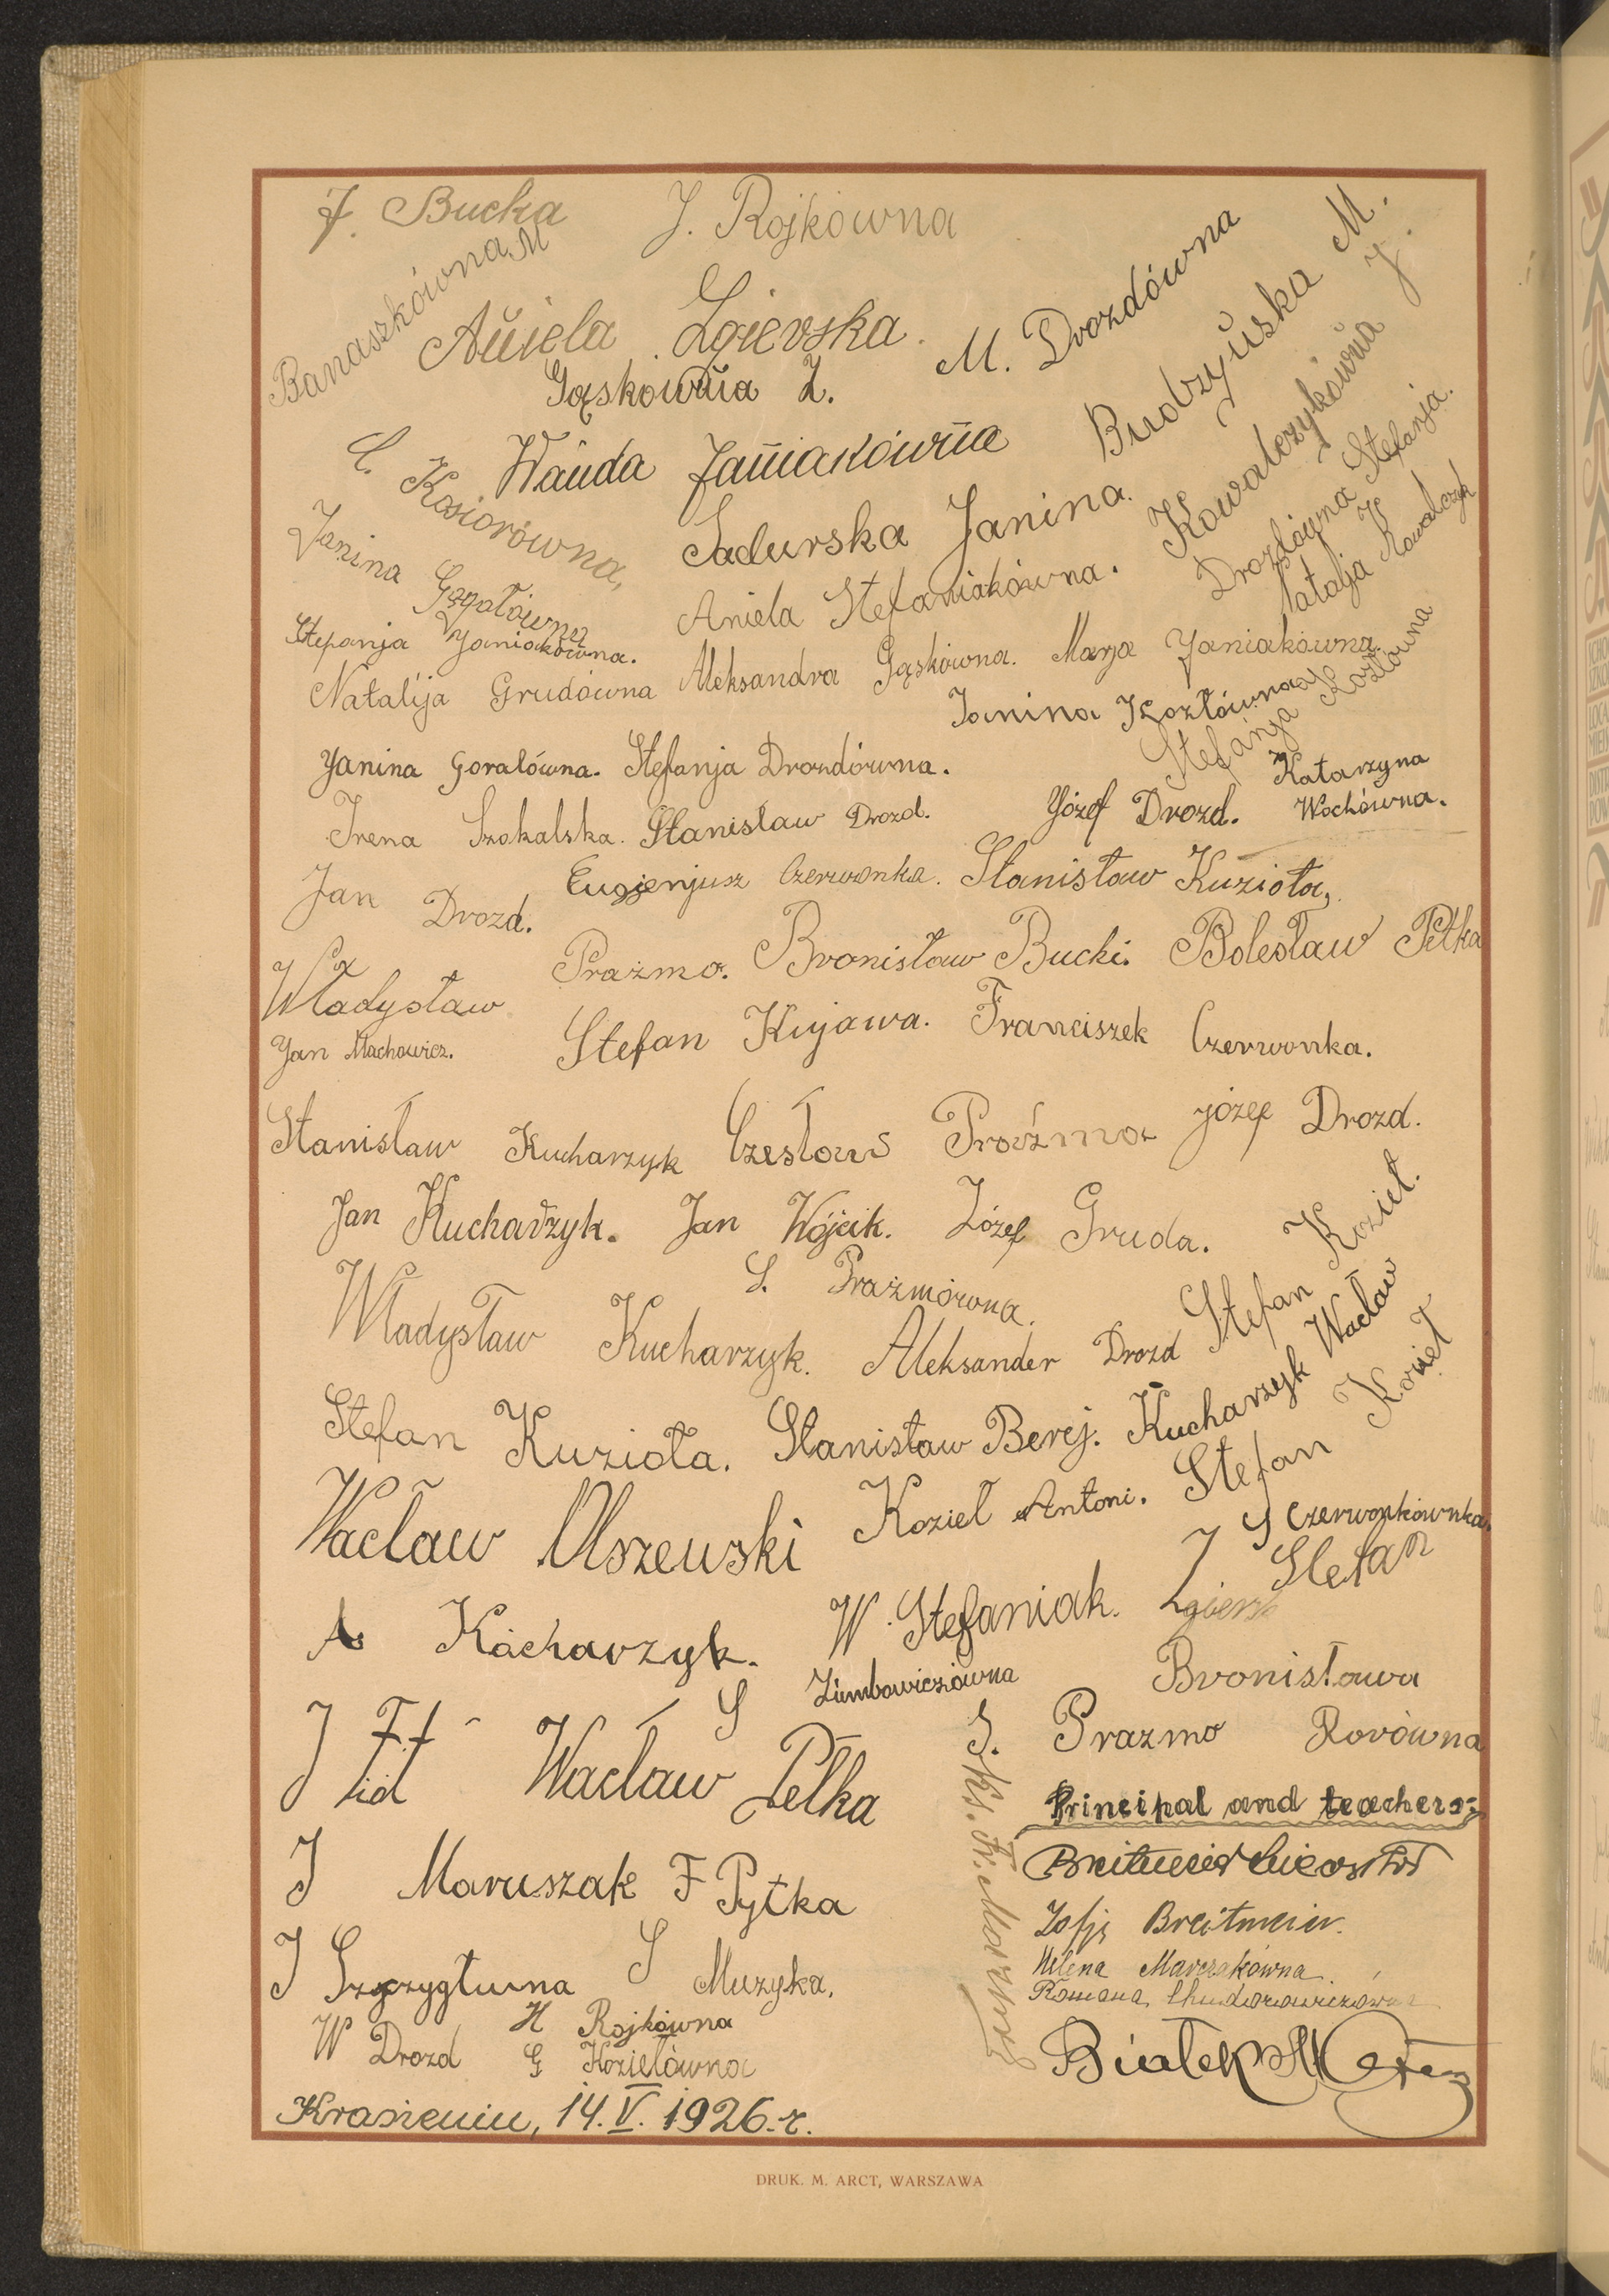 J. Bucka
J. Rojkówna
Banaszkówna M
Aniela Zgierska.
Gąskówna Z.
M. Drozdówna
Budzyńska M.
Wanda Janiakówna
Kosiorówna,
Sadurska Janina.
Kowalczykówna J.
Janina Gogołówna
Aniela Stefaniakówna.
Drozdówna Stefanja.
Natalja Kowalczyk
Stepanja Janiakówna.
Natalija Grudówna
Aleksandra Gąskówna.
Marja Janiakówna.
Janina Kozłówna
Stefanja Kozłówna
Janina Goralówna.
Stefanja Drozdówna.
Katarzyna Wochówna.
Irena Szokalska.
Stanisław Drozd.
Józef Drozd.
Jan Drozd.
Eugjenjusz Czerwonka.
Stanisław Kuzioła.
Władysław Prażmo.
Bronisław Bucki.
Bolesław Pełka
Jan Machowicz.
Stefan Kujawa.
Franciszek Czerwonka.
Stanisław Kucharzyk
Czesław Praźmo
józef Drozd.
Jan Kucharzyk.
Jan Wójcik.
Józef Gruda.
Stefan Kozieł.
S. Prażmówna.
Władysław Kucharzyk.
Aleksander Drozd
Kucharzyk Wacław
Stefan Kuzioła.
Stanisław Berej.
Stefan Kozieł
Wacław Olszewski
Kozieł Antoni.
S Czerwonkównka.
A Kucharzyk.
W. Stefaniak.
J Stefan
S Zimbowiczówna
Bronisława Rorówna
J
Wacław Pełka
S. Prazmo
Principal and teachers:
J Maruszak
F Pytka
Zofja Breitmeier.
J Szprzygłuwna
S Muzyka.
Helena Marczakówna.
Romana Chudorowiczówna
H Rojkówna
W Drozd
G Koziełówna
Ks. Fr.
Białek
Krasieniu, 14.V.1926.r.
DRUK. M. ARCT, WARSZAWA